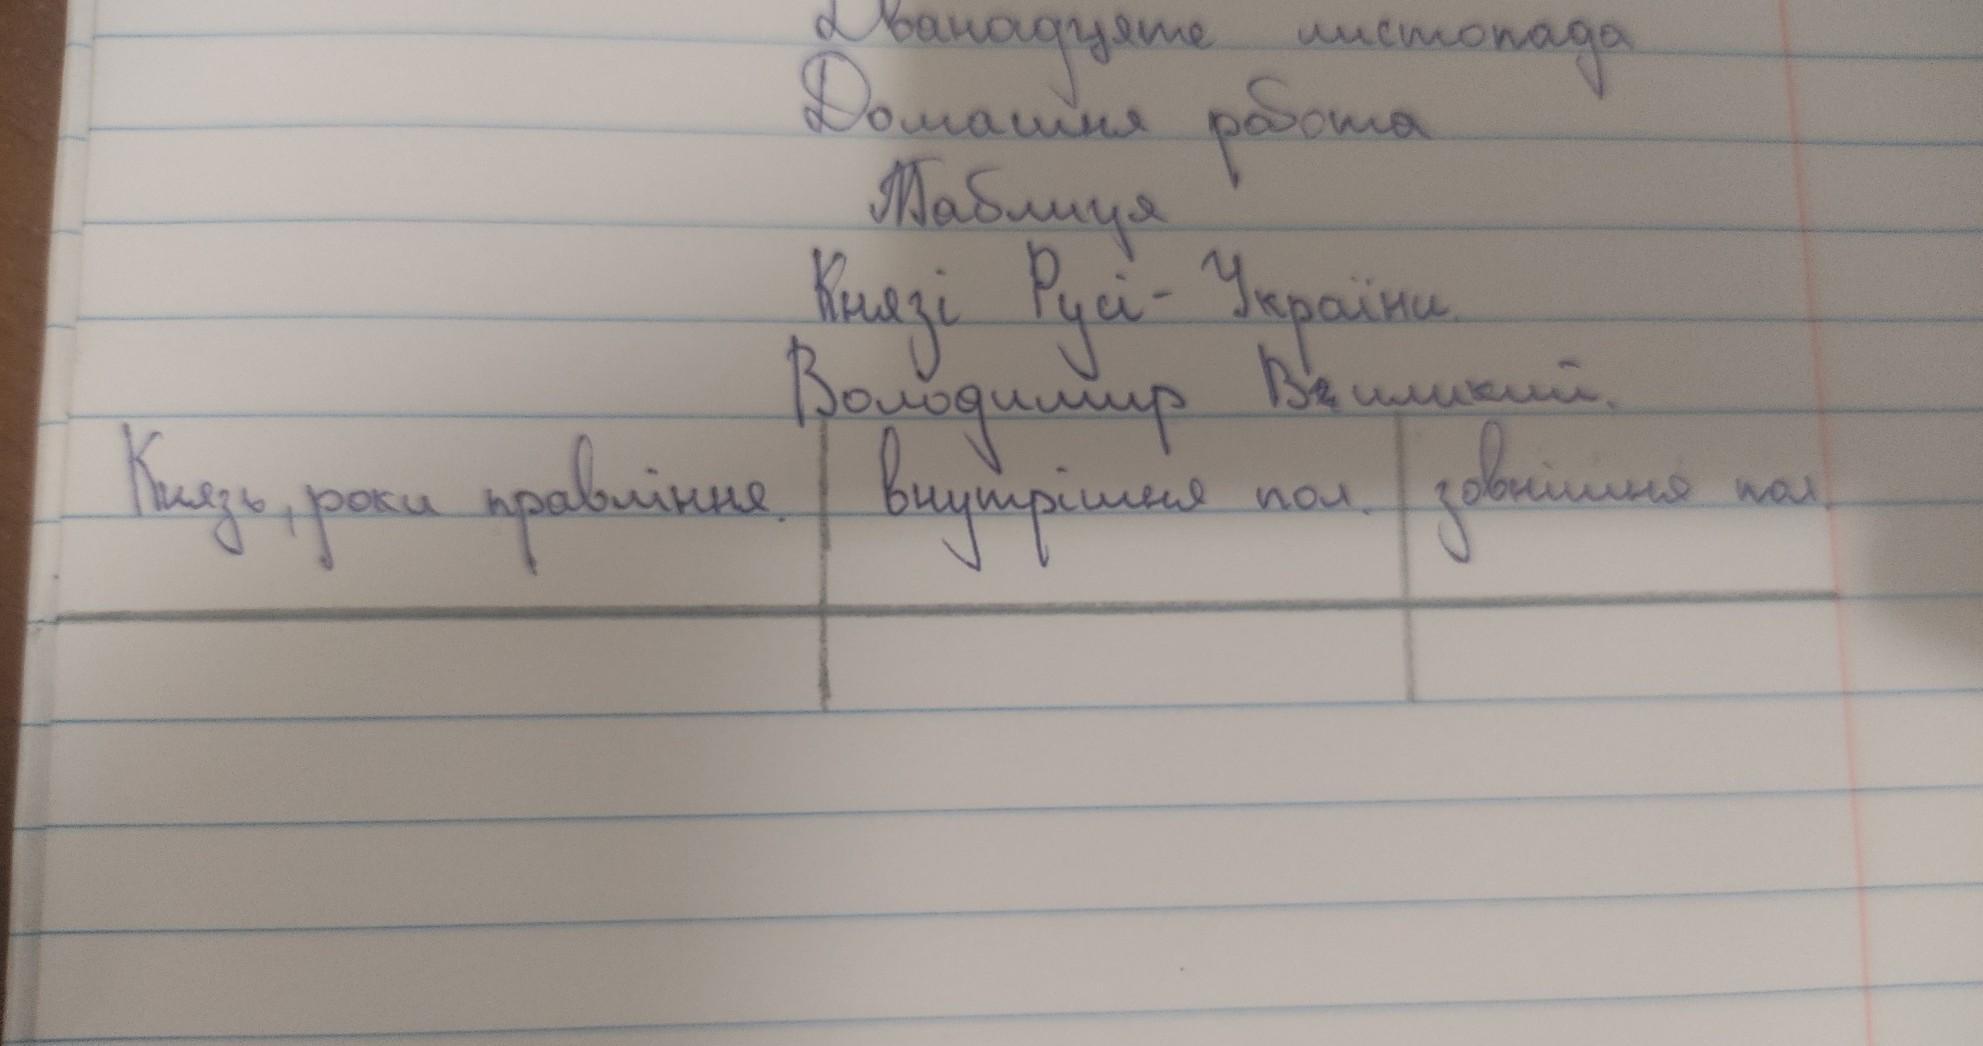 Дванадцяте листопада
Домашня робота
Таблиця
Князі Русі- України.
Володимир Великий.
Князь, роки правління. внутрішня пол. зовнішня пол.